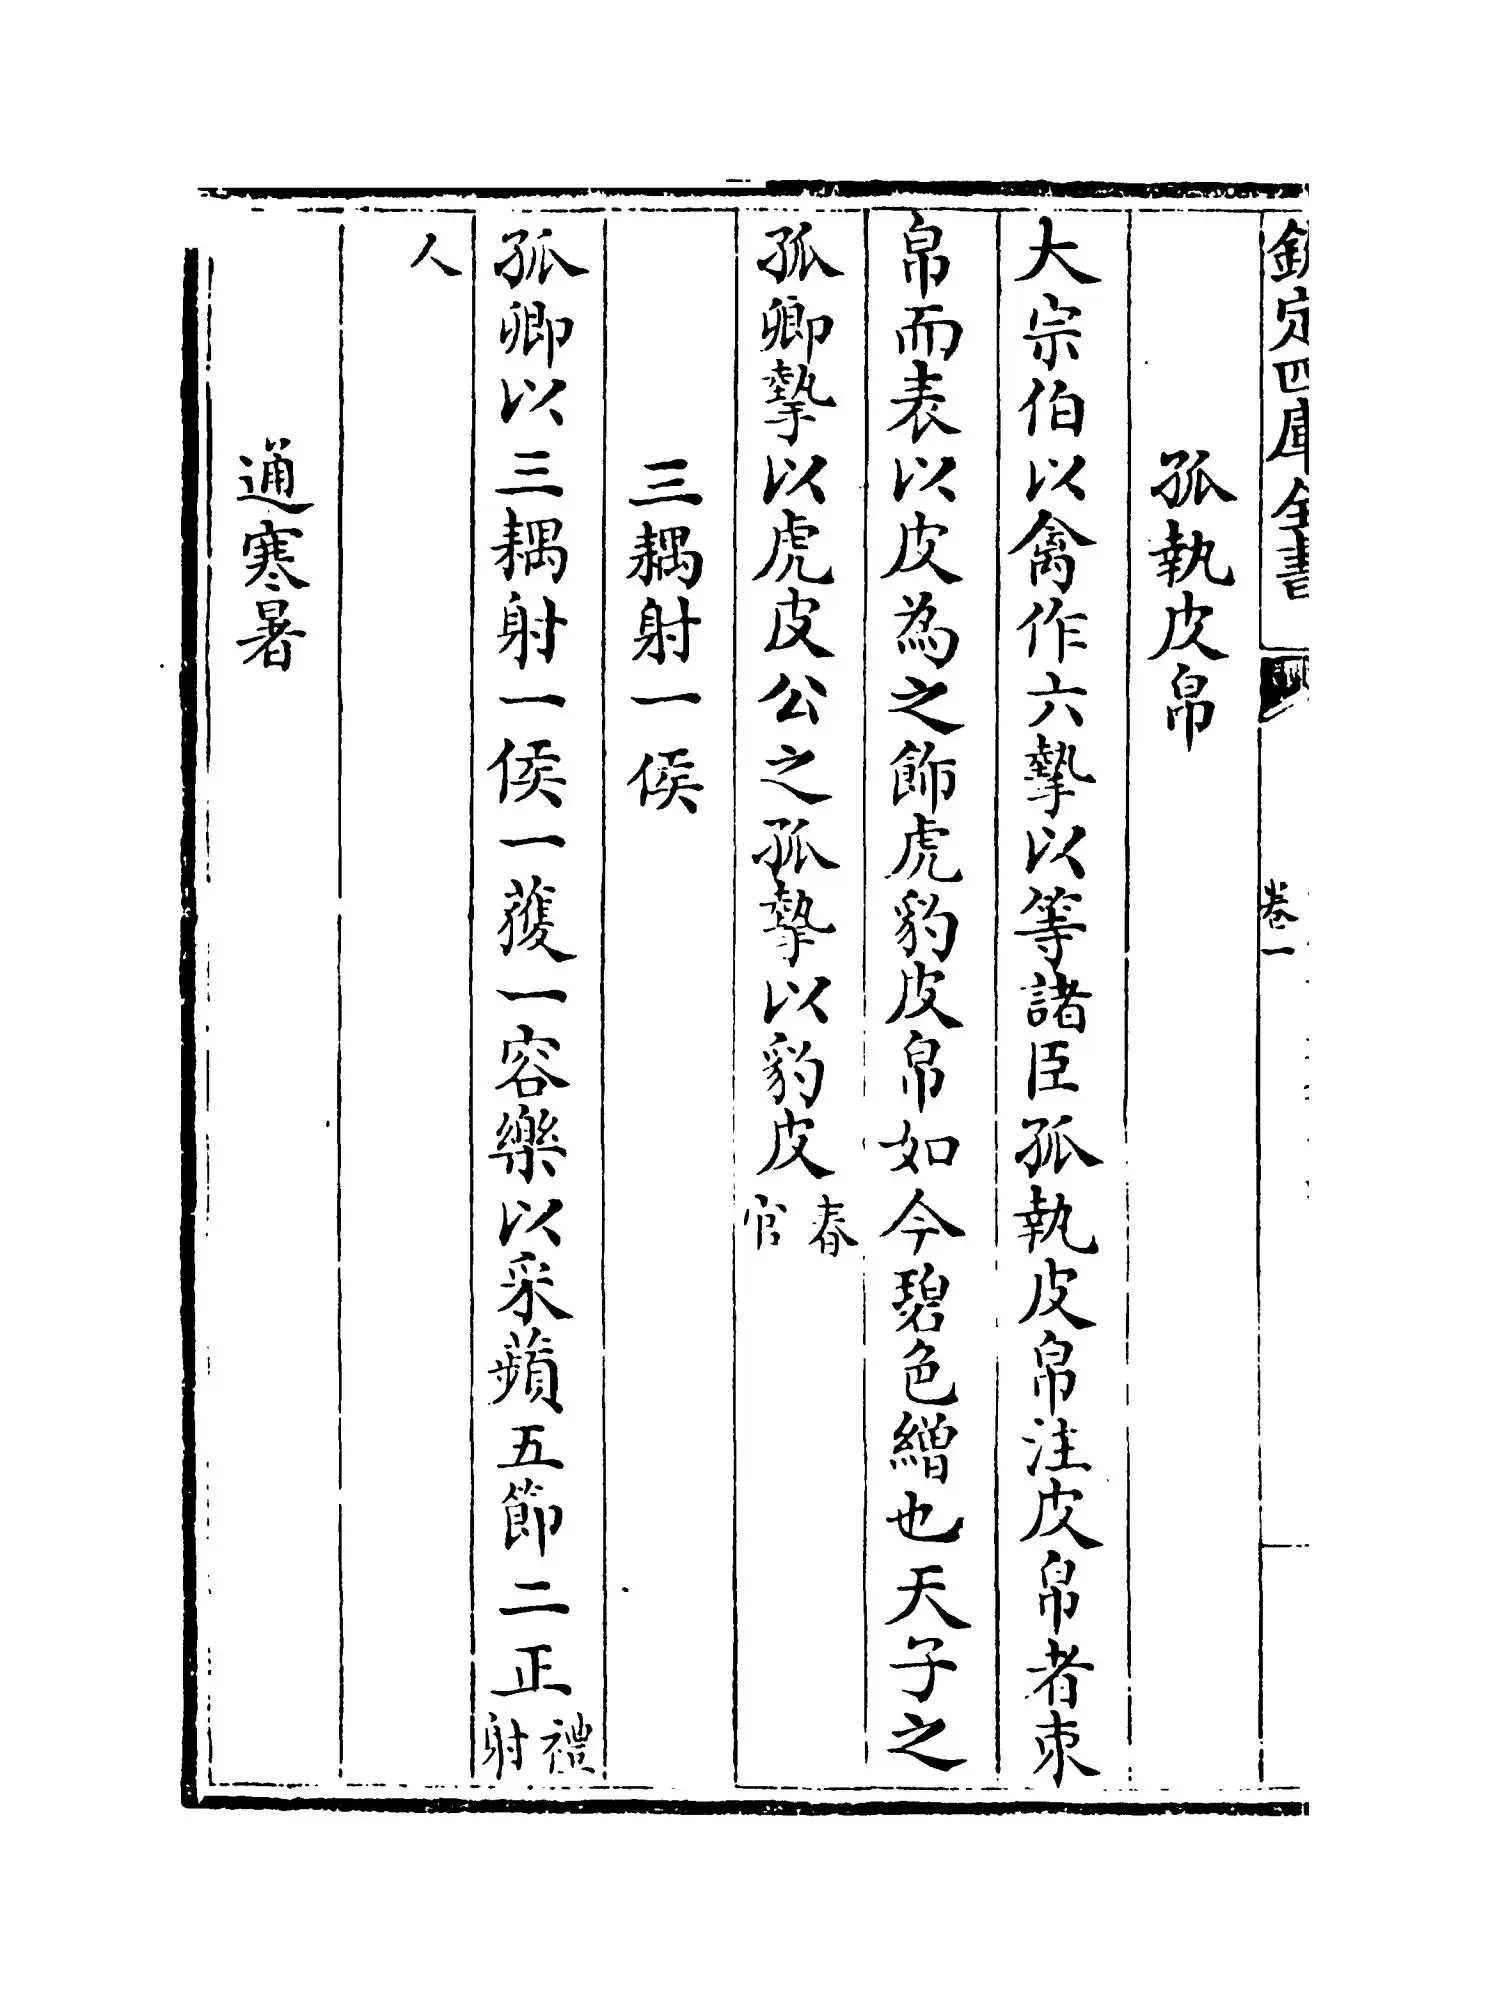 欽定四庫全書
卷一
孤執皮帛
大宗伯以禽作六摯以等諸臣孤執皮帛注皮帛者束
帛而表以皮為之飾虎豹皮帛如今碧色繒也天子之
孤卿摯以虎皮公之孤摯以豹皮春官
三耦射一侯
孤卿以三耦射一侯一蒦一容樂以采蘋五節二正禮射
人
通寒暑